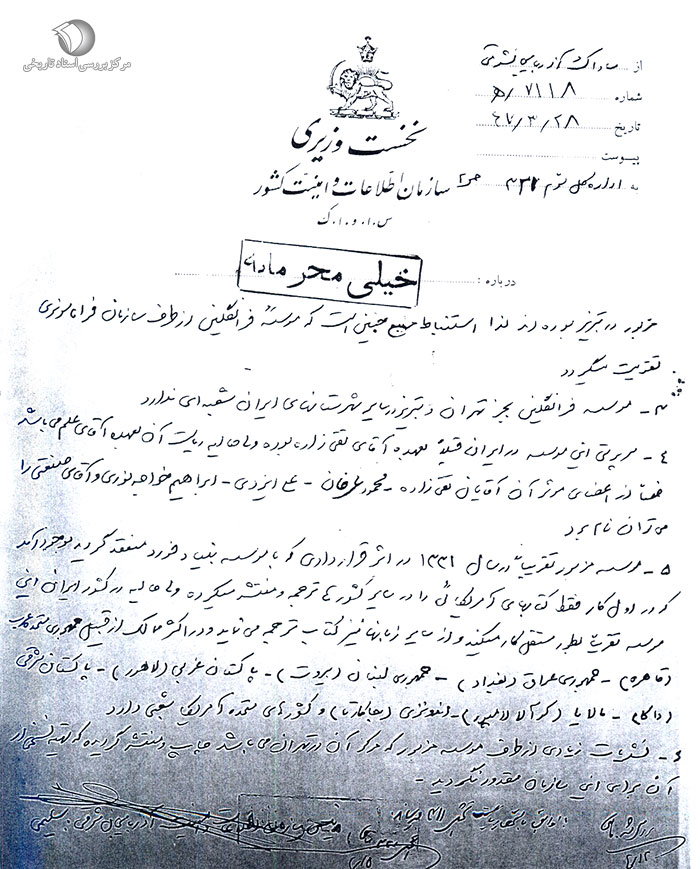 مرکز بررسی اسناد تاریخی
از ساواک آذربایجانشرقی
شماره ۷۱۱۸/ه
تاریخ ۴۷/۳/۲۸
پیوست
به اداره کل سوم ۳۳۲
نخست وزیری
سازمان اطلاعات و امنیت کشور
س.ا.و.ا.ک
درباره :
خیلی محرمانه
مزبور در تبریز بوده اند لذا استنباط منبع چنین است که موسسه فرانکلین از طرف سازمان فراماسونری
تقویت میگردد
۳- موسسه فرانکلین بجز تهران و تبریز در سایر شهرستانهای ایران شعبه ای ندارد
۴- سرپرستی این موسسه در ایران قبلاً بعهده آقای تقی زاده بوده ولی حالیه ریاست آن بعهده آقای علم می باشد
ضمناً از اعضای موثر آن آقایان تقی زاده - محمود - علی ایزدی - ابراهیم خواجه نوری و آقای صنعتی را
می توان نام برد
۵- موسسه مزبور تقریباً در سال ۱۳۳۱ در اثر قراردادی که با موسسه بنیاد فورد منعقد گردید بوجود آمد
که در اول کار فقط کتابهای آمریکائی را در سایر کشورها ترجمه و منتشر میکرده ولی حالیه در کشور ایران این
موسسه تقریباً بطور مستقل کار میکند و از سایر زبانها نیز کتاب ترجمه می نماید و در اکثر ممالک از قبیل جمهوری متحده عرب
(قاهره) - جمهوری عراق (بغداد) - جمهوری لبنان (بیروت) - پاکستان غربی (لاهور) - پاکستان شرقی
(داکا) - مالایا (کوآلالامپور) - اندونزی (جاکارتا) و کشورهای متحده آمریکا شعبی دارد
۶- نشریات زیادی از طرف موسسه مزبور که مرکز آن در تهران می باشد چاپ و منتشر گردیده که تهیه نسخی از
آن برای این سازمان مقدور نگردید -
آذربایجان شرقی